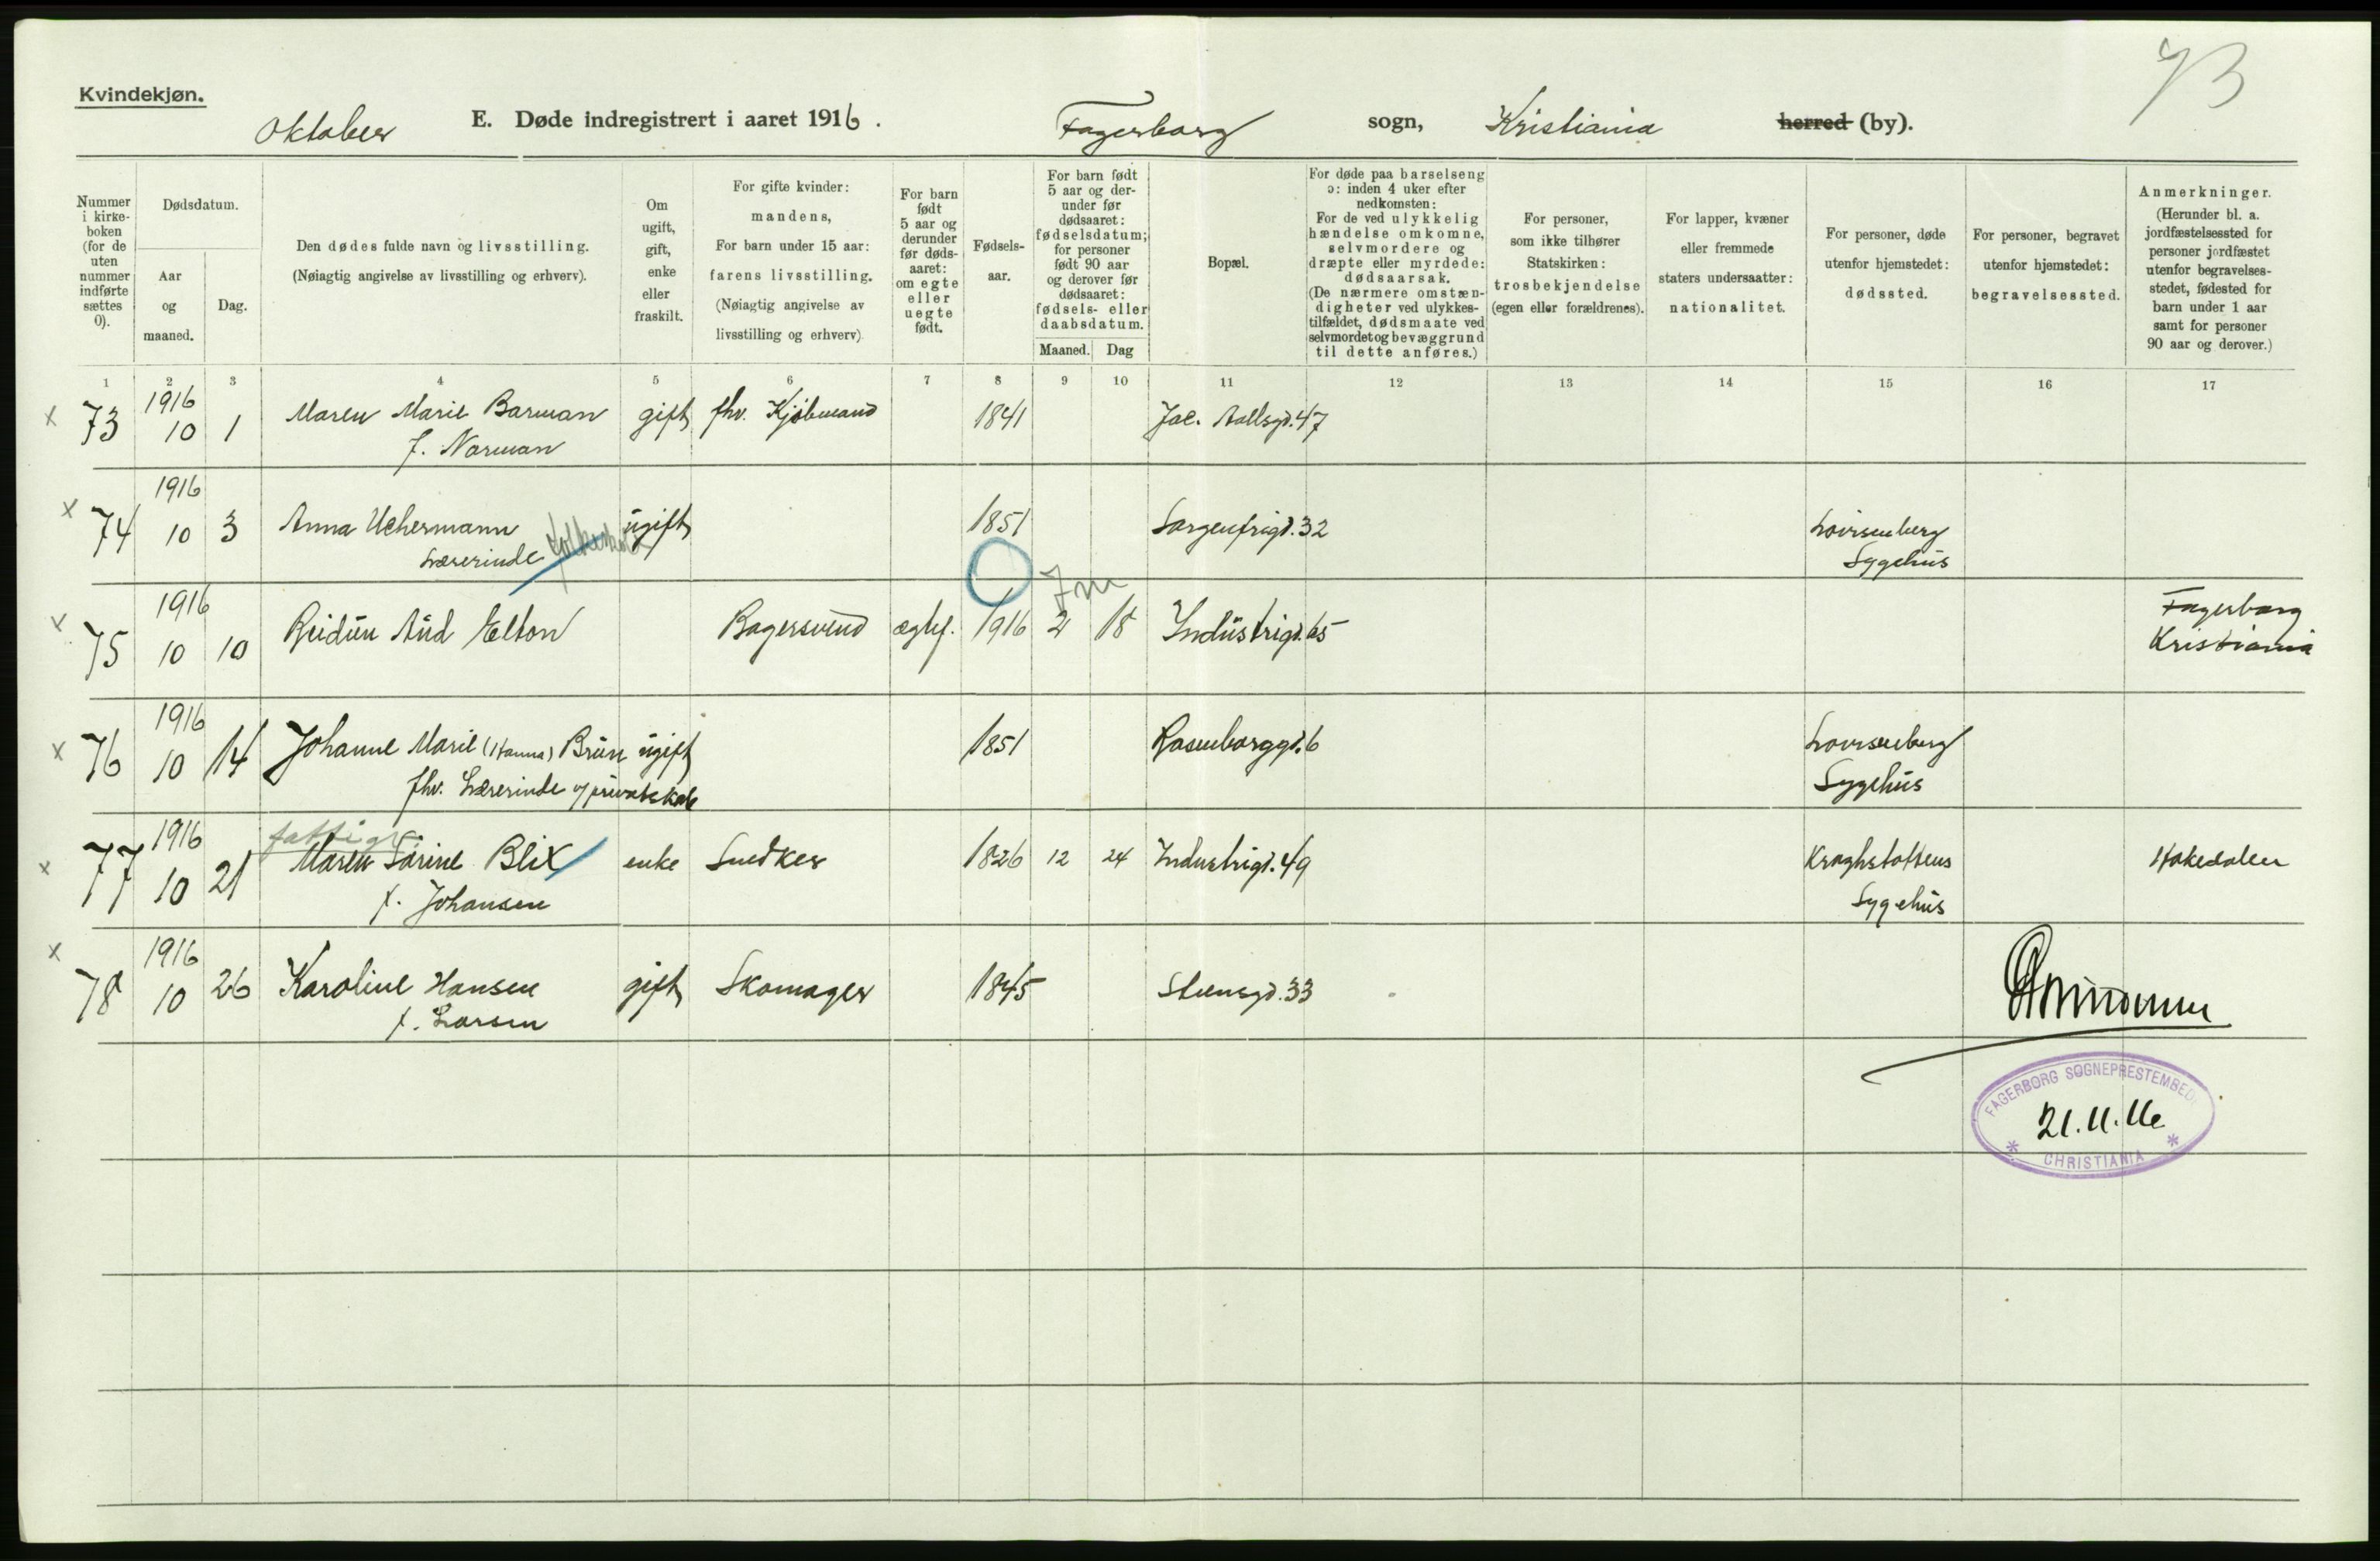 73
Kvindekjøn.
Oktober E. Døde indregistrert i aaret 1916. Fagerborg sogn, Kristiania herred (by).
Nummer i kirke-
boken
(for de
uten
nummer
indførte
sættes
0).
Dødsdatum.
Aar
og
maaned.
Dag.
Den dødes fulde navn og livsstilling.
(Nøiagtig angivelse av livsstilling og erhverv).
Om
ugift,
gift,
enke
eller
fraskilt.
For gifte kvinder:
mandens,
For barn under 15 aar:
farens livsstilling.
(Nøiagtig angivelse av
livsstilling og erhverv)
For barn
født
5 aar og
derunder
før døds-
aaret:
om egte
eller
uegte
født.
Fødsels-
aar.
For barn født
5 aar og der-
under før
dødsaaret:
fødselsdatum;
for personer
født 90 aar
og derover før
dødsaaret:
fødsels- eller
daabsdatum.
Maaned. Dag
Bopæl.
For døde paa barselseng
ɔ: inden 4 uker efter
nedkomsten:
For de ved ulykkelig
hændelse omkomne,
selvmordere og
dræpte eller myrdede:
dødsaarsak.
(De nærmere omstæn-
digheter ved ulykkes-
tilfældet, dødsmaate ved
selvmordet og bevæggrund
til dette anføres.)
For personer,
som ikke tilhører
Statskirken:
trosbekjendelse
(egen eller forældrenes).
For lapper, kvæner
eller fremmede
staters undersaatter:
nationalitet.
For personer, døde
utenfor hjemstedet:
dødssted.
For personer, begravet
utenfor hjemstedet:
begravelsessted.
Anmerkninger.
(Herunder bl. a.
jordfæstelsessted for
personer jordfæstet
utenfor begravelses-
stedet, fødested for
barn under 1 aar
samt for personer
90 aar og derover.)
1 2 3 4 5 6 7 8 9 10 11 12 13 14 15 16 17
x 73 1916 10 1 Maren Marie Barman gift fhv. Kjøbmand 1841 Jac. Aallsgd. 47
f. Norman
x 74 1916 10 3 Anna Uchermann ugift 1851 Sorgenfrigd. 32 Lovisenberg
Lærerinde folkeskole Sygehus
7 m
x 75 1916 10 10 Reidun Aud Elton Bagersvend ægtef. 1916 2 18 Industrigd. 65 Fagerborg
Kristiania
x 76 1916 10 14 Johanne Marie (Hanna) Brun ugift 1851 Rosenborggd. 6 Lovisenberg
fhv. Lærerinde v/ privatskole Sygehus
fattig
x 77 1916 10 21 Maren Sørine Blix enke Snedker 1826 12 24 Industrigt. 49 Kraghstøttens Hakedalen
f. Johansen Sygehus
x 78 1916 10 26 Karoline Hansen gift Skomager 1845 Stensgd. 33
f. Larsen
FAGERBORG SOGNEPRESTEMBED
21.11.16
* CHRISTIANIA *